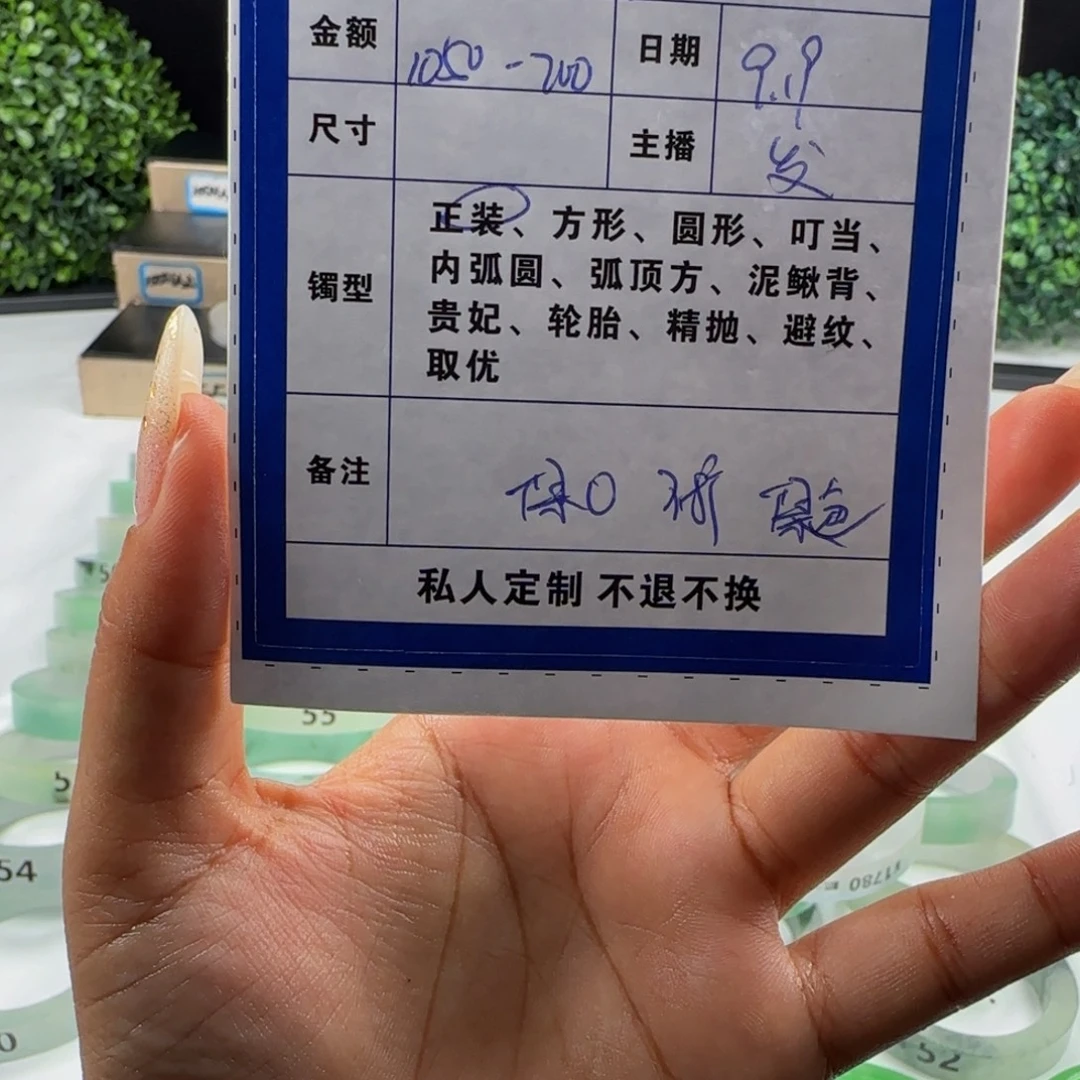 金额 1050-700 日期 9.19
尺寸 主播 发
镯型 正装、方形、圆形、叮当、
内弧圆、弧顶方、泥鳅背、
贵妃、轮胎、精抛、避纹、
取优
备注 保色
私人定制 不退不换
55
54
52
1780